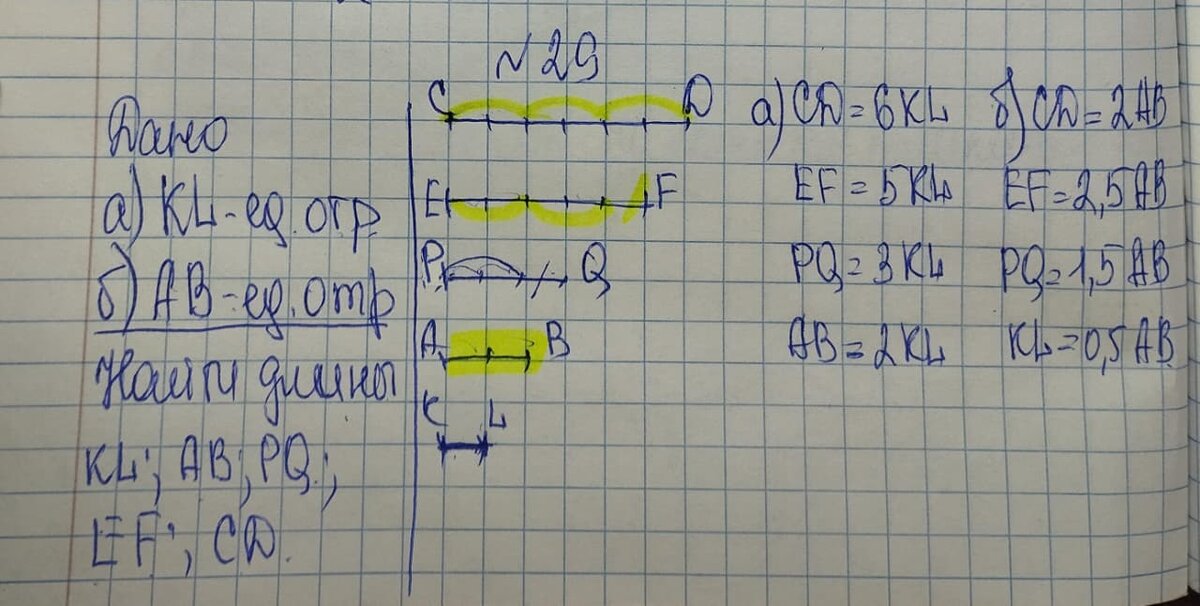 №29
Дано
а) KL-ед.отр.
б) AB-ед.отр
Найти длины
KL; AB; PQ;
EF; CD.
C D
E F
P Q
A B
K L
а) CD = 6KL
EF = 5KL
PQ = 3KL
AB = 2KL
б) CD = 2AB
EF = 2,5AB
PQ = 1,5AB
KL = 0,5AB